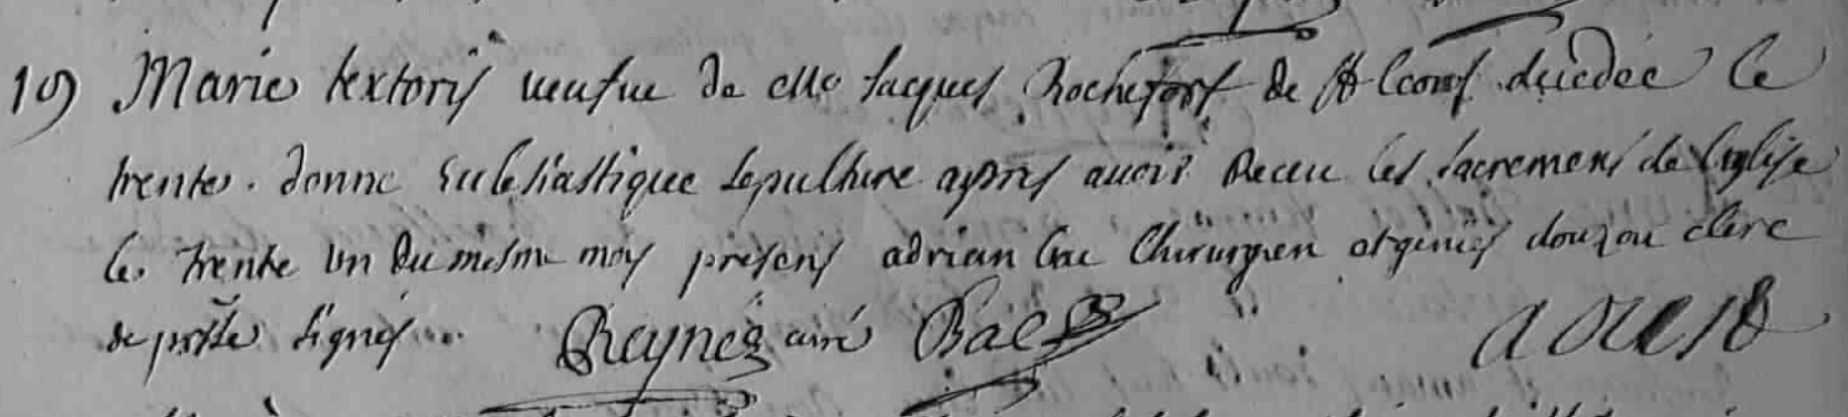 19) Marie textoris veufue de Jacques Rochefort de decedée le
trente. donné Eccleliastique sepulture apres avoir Receu les sacremens de l'eglise
le trente un du mesme moy presens adrian chirurgien clerc
signés... Reynes curé Bac